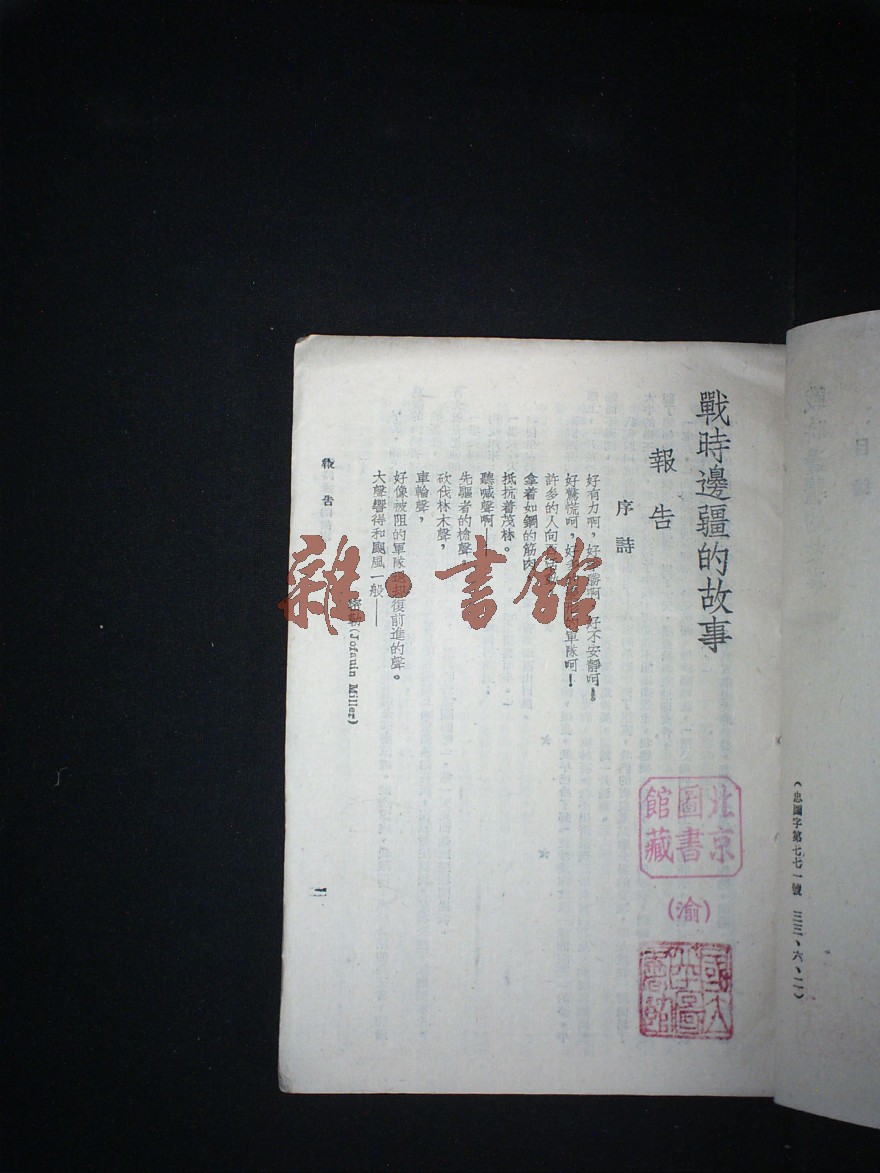 (忠圖字第七七一號 三三、六、二)
戰時邊疆的故事
報告
序詩
好有力啊,好
好不安靜呵!
好驚慌呵,好
軍隊呵!
許多的人向
拿着如鋼的筋肉
抵抗着茂林。
聽喊聲啊——
先驅者的槍聲
砍伐林木聲,
車輪聲,
好像被阻的軍隊退却復前進的聲。
大聲響得和颶風一般——
Miller)
報告
一
北京
圖書
館藏
(渝)
國立
北平圖
書館
雜·書館